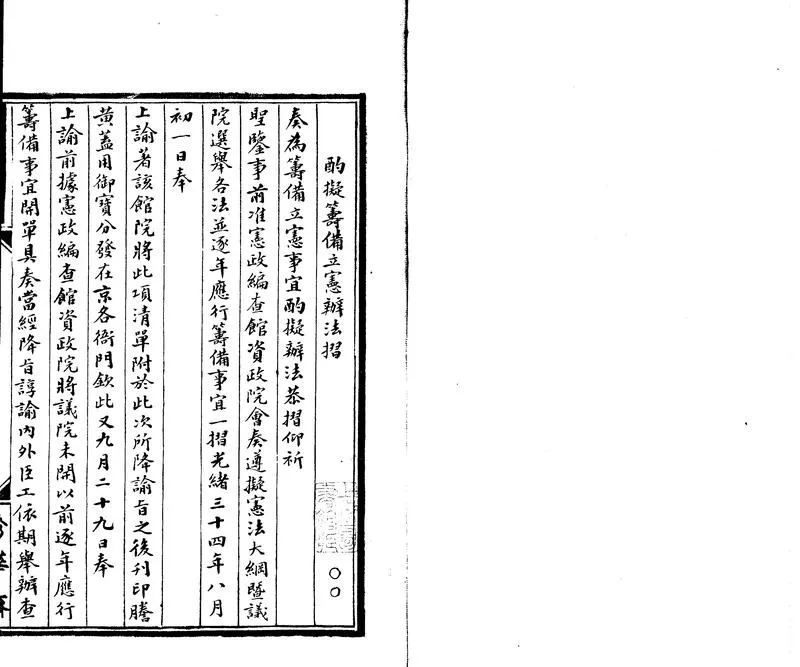 酌擬籌備立憲辦法摺
〇〇
奏為籌備立憲事宜酌擬辦法恭摺仰祈
聖鑒事前准憲政編查館資政院會奏遵擬憲法大綱暨議
院選舉各法並逐年應行籌備事宜一摺光緒三十四年八月
初一日奉
上諭著該館院將此項清單附於此次所降諭旨之後刊印謄
黃蓋用御寶分發在京各衙門欽此又九月二十九日奉
上諭前據憲政編查館資政院將議院未開以前逐年應行
籌備事宜開單具奏當經降旨諄諭內外臣工依期舉辦查